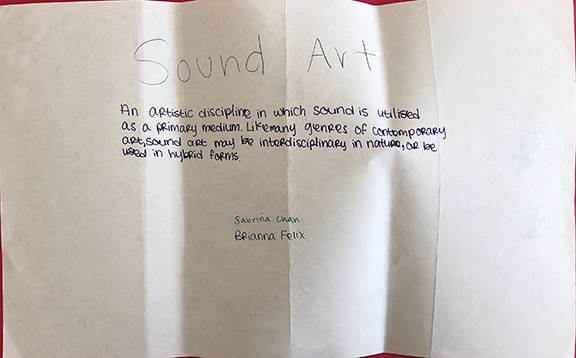 Sound Art
An artistic discipline in which sound is utilised
as a primary medium. Like many genres of contemporary
art, sound art may be interdisciplinary in nature, or be
used in hybrid forms.
Sabrina Chan
Brianna Felix